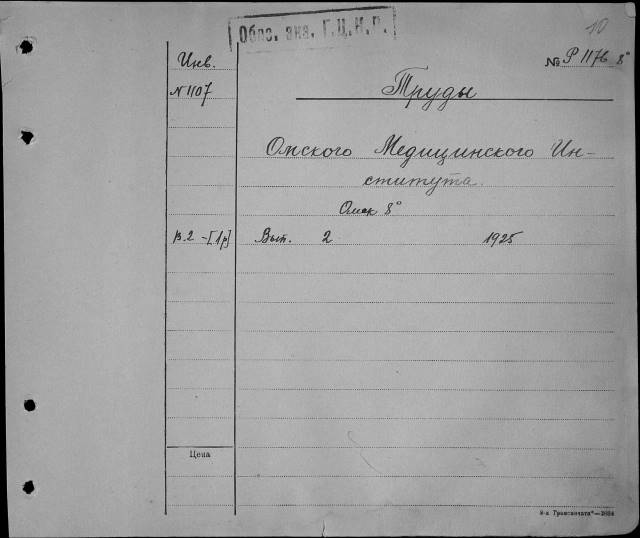 Обяз. экз. Г.Ц.К.Р.
10
Инв.
№ Р 1176 8°
N 1107
Труды
Омского Медицинского Ин-
ститута.
Омск 8°
в.2 - [1р] Вып. 2 1925
Цена